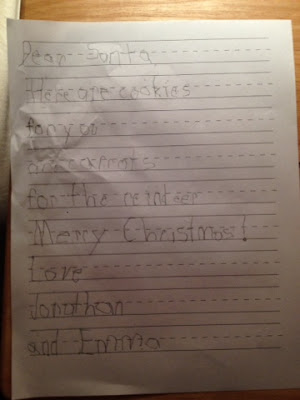 Dear Santa,
Here are cookies
for you
and carrots
for the reinteer
Merry Christmas!
Love
Jonathan
and Emma